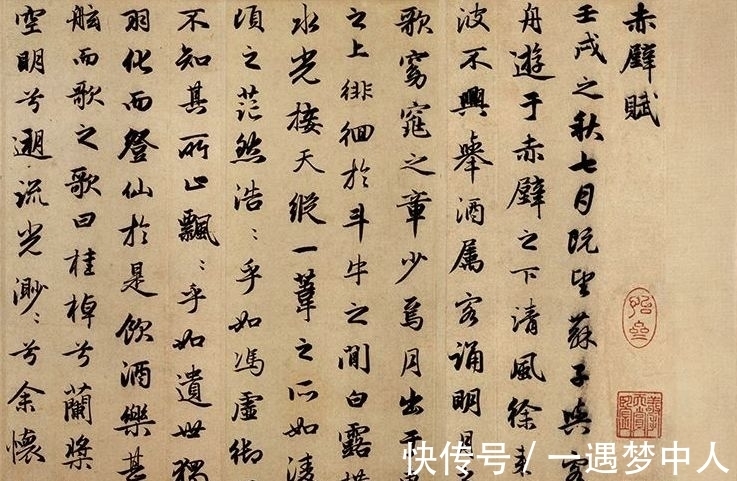 赤壁賦
壬戌之秋七月既望蘇子與客
舟遊于赤壁之下清風徐来
波不興舉酒属客誦明月
歌窈窕之章少焉月出于東
之上徘徊於斗牛之間白露橫
水光接天縱一葦之所如凌
頃之茫然浩〻乎如馮虛御
不知其所止飄〻乎如遺世獨
羽化而登仙於是飲酒樂甚
舷而歌之歌曰桂棹兮蘭槳
空明兮遡流光渺〻兮余懷
快传号 / 一遇梦中人